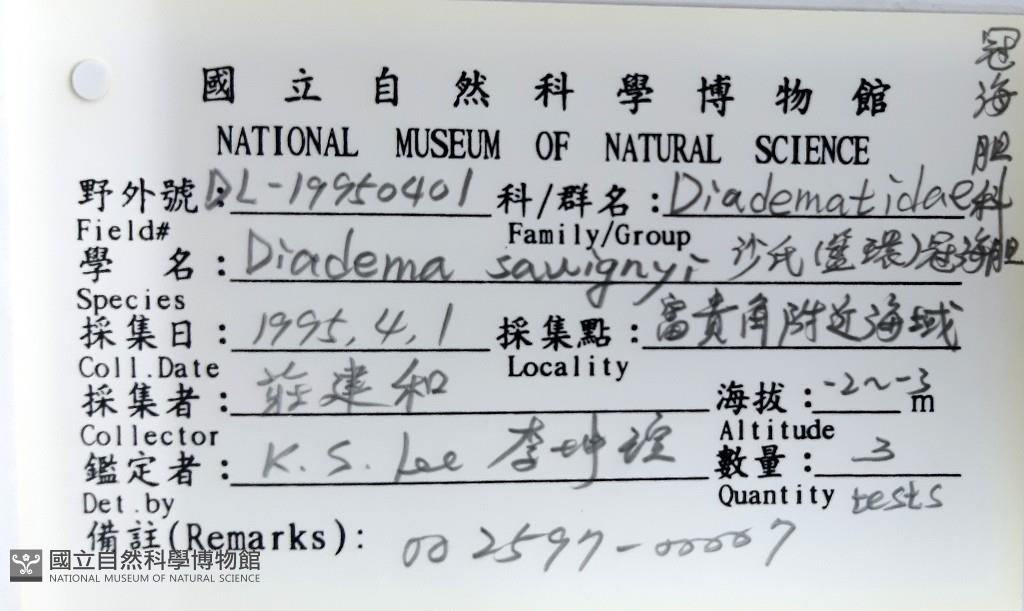 國立自然科學博物館
NATIONAL MUSEUM OF NATURAL SCIENCE
野外號:DL-19950401 科/群名:Diadematidae 冠海胆科
Field# Family/Group
學 名:Diadema savignyi 沙氏(藍環)冠海胆
Species
採集日:1995.4.1 採集點:富貴角附近海域
Coll.Date Locality
採集者:莊建和 海拔:-2~-3 m
Collector Altitude
鑑定者:K.S. Lee 李坤瑄 數量:3 tests
Det.by Quantity
備註(Remarks): 002597-00007
國立自然科學博物館
NATIONAL MUSEUM OF NATURAL SCIENCE